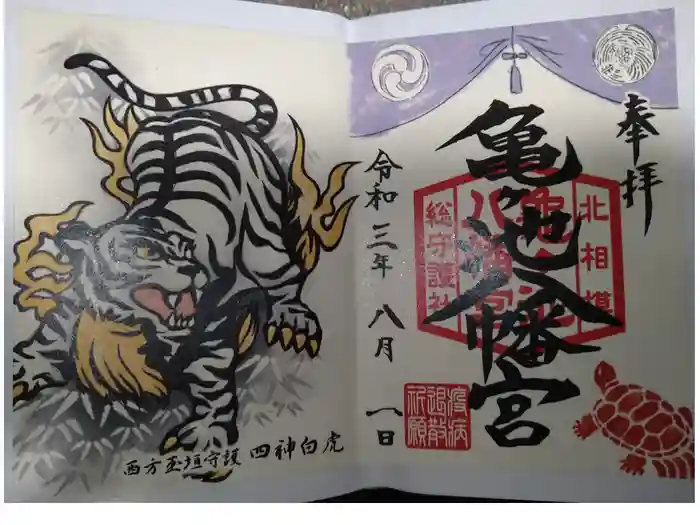 奉拝
亀ヶ池八幡宮
北相模
総守護社
疫病
退散
祈願
令和三年八月一日
西方玉垣守護 四神白虎